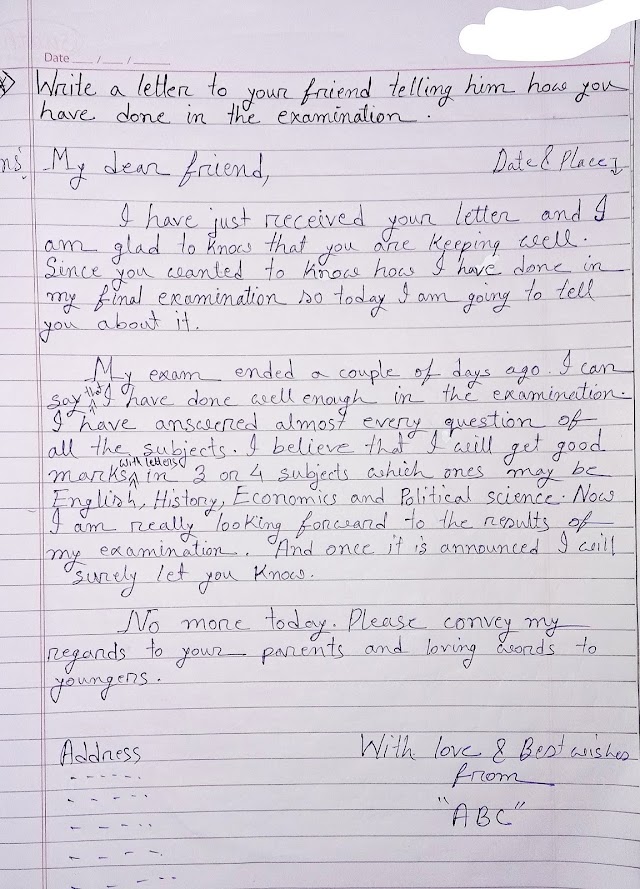 Date ___/___/_____
Write a letter to your friend telling him how you
have done in the examination.
ns My dear friend, Date & Place
I have just received your letter and I
am glad to know that you are keeping well.
Since you wanted to know how I have done in
my final examination so today I am going to tell
you about it.
My exam ended a couple of days ago. I can
say that I have done well enough in the examination.
I have answered almost every question of
all the subjects. I believe that I will get good
marks with letters in 3 or 4 subjects which ones may be
English, History, Economics and Political science. Now
I am really looking forward to the results of
my examination. And once it is announced I will
surely let you know.
No more today. Please convey my
regards to your parents and loving words to
youngers.
Address With love & Best wishes
from
"ABC"